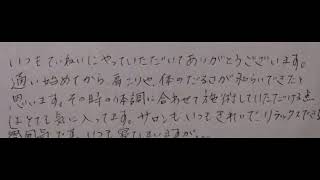 いつもていねいにやっていただいてありがとうございます。
通い始めてから、肩こりや、体のだるさが和らいできたと
思います。その時の体調に合わせて施術していただける点
はとても気に入ってます。サロンもいつもきれいでリラックスできる
雰囲気です。いつも寝ちゃいますが...